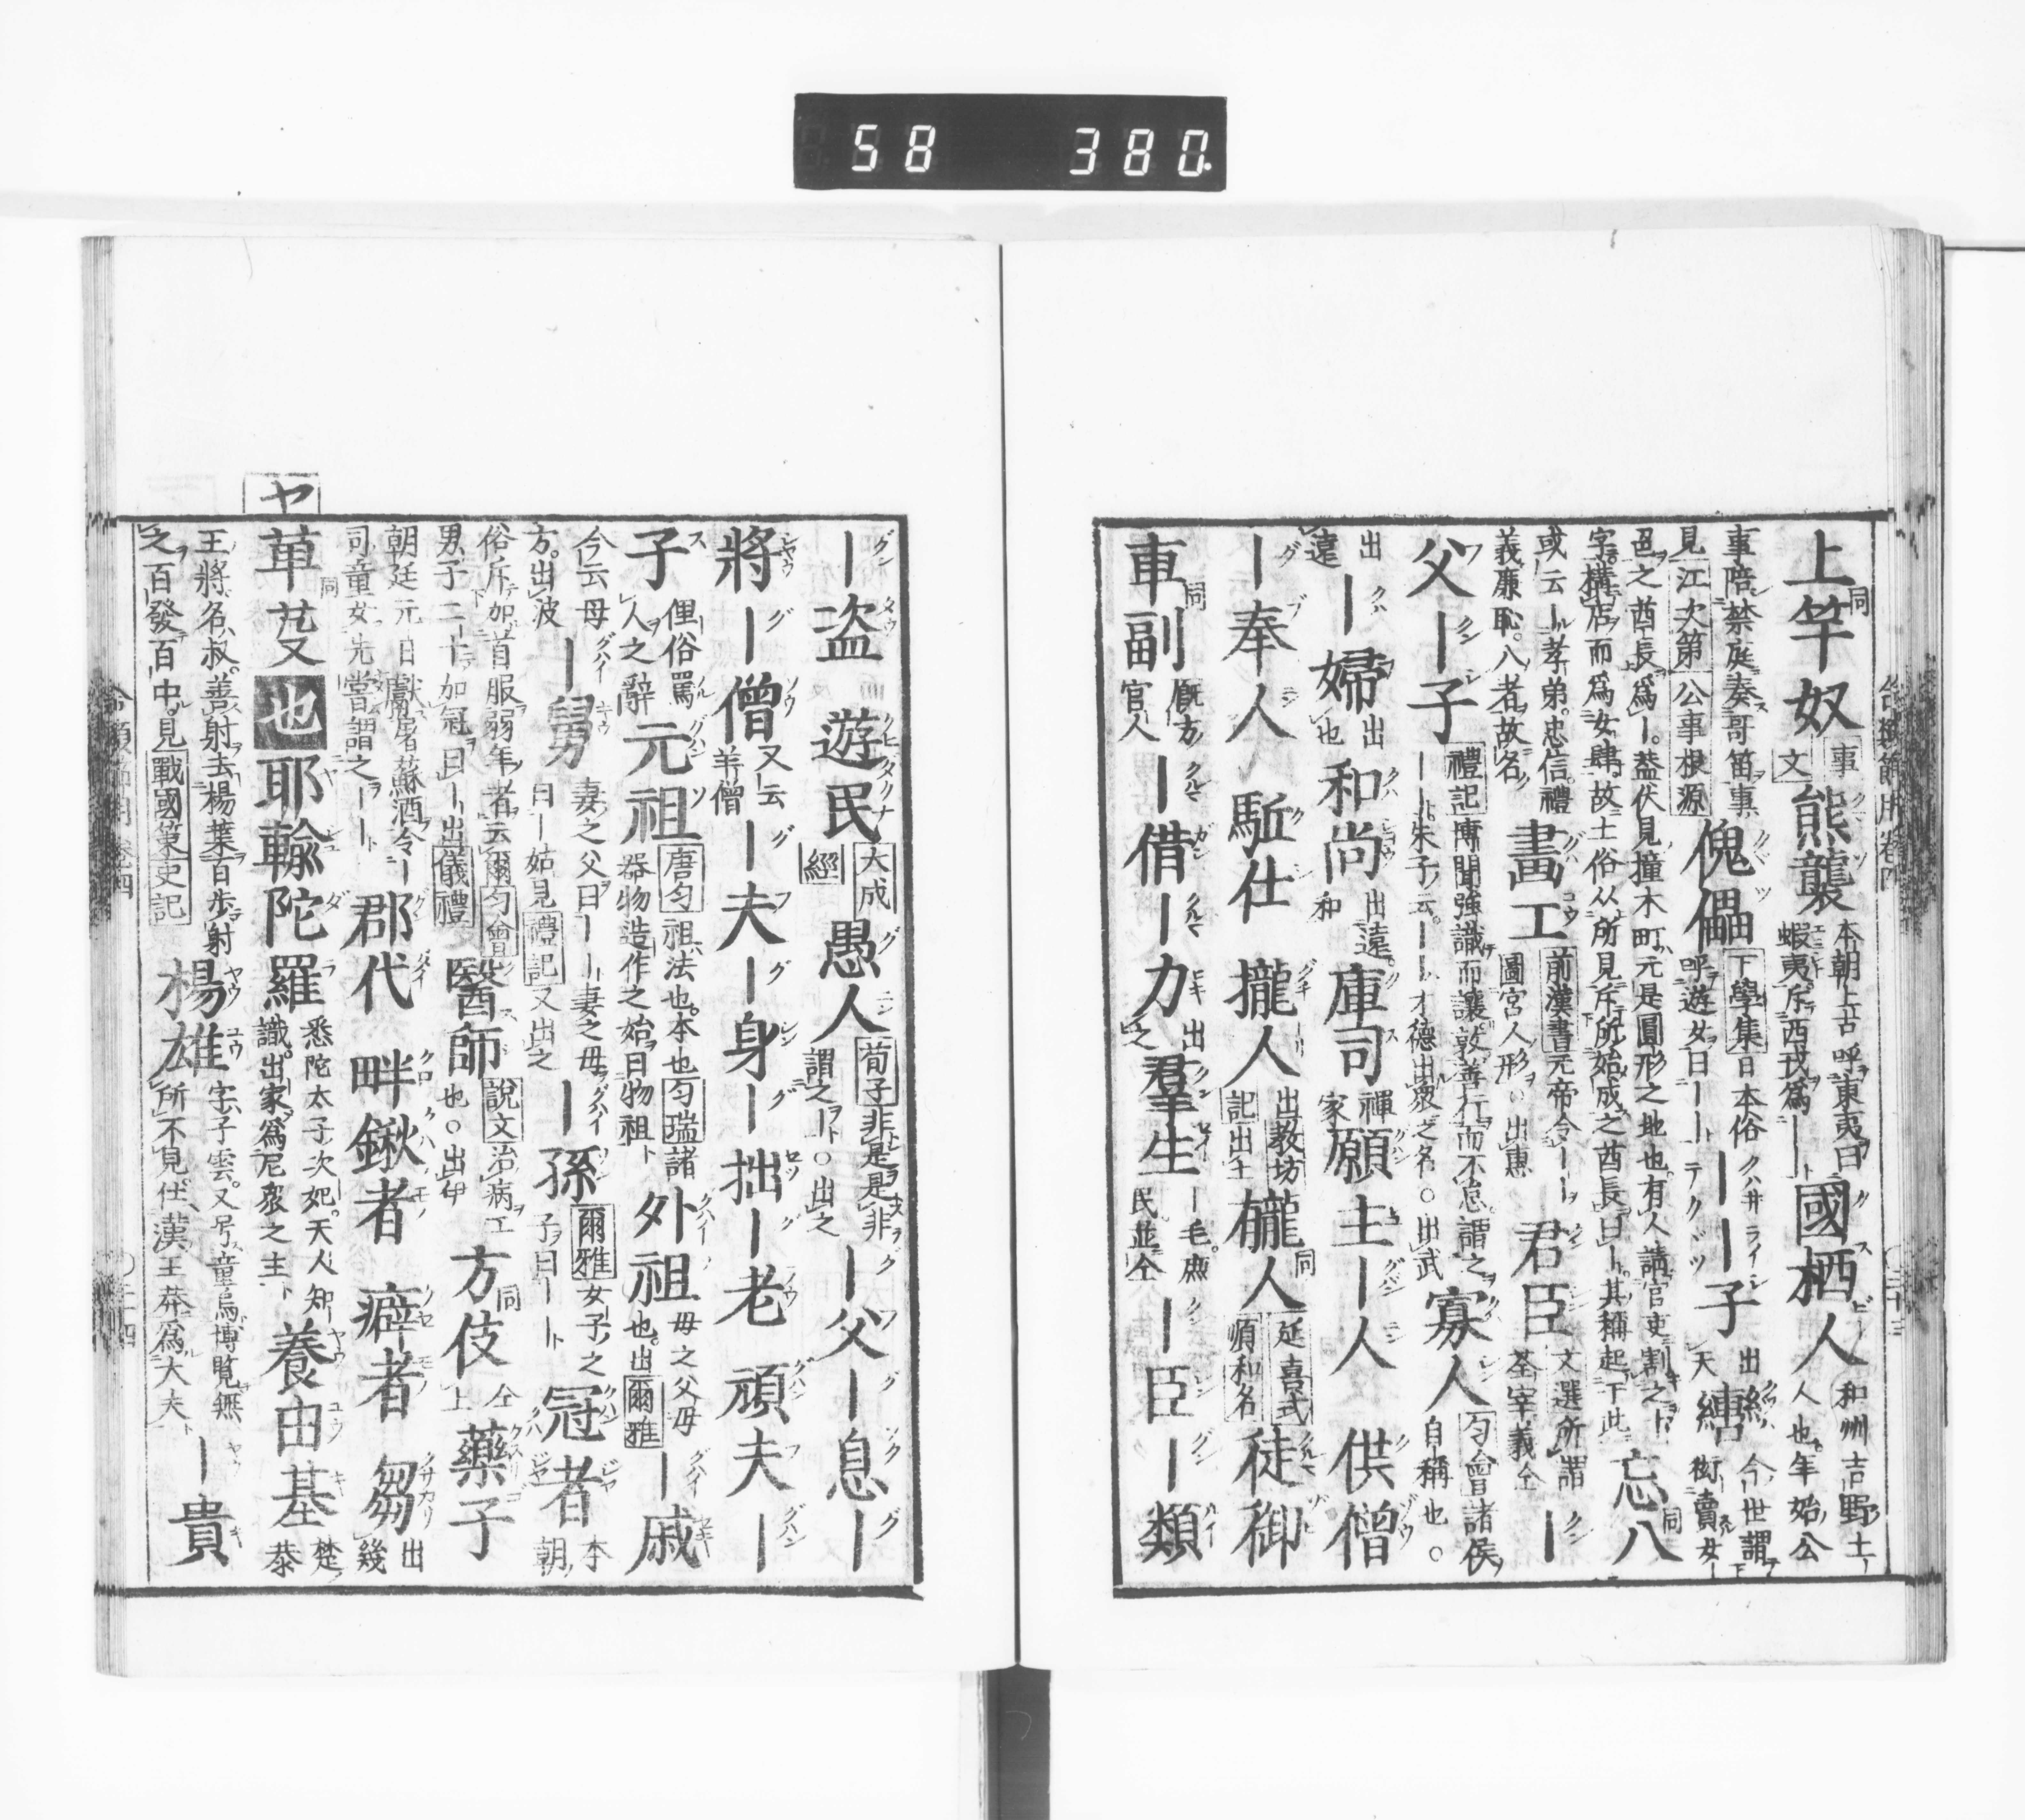 58 380
合類節用卷四
上竿奴 同 事文 熊襲 本朝上古呼東夷曰蝦夷斥西戎爲ー 國栖人 和州吉野土人也年始公
事陪禁庭奏哥笛事見江次第公事根源 傀儡 下學集日本俗呼遊女曰ーー ーー子 出天 縛 今世謂街賣女ー
邑之酋長爲ー。葢伏見撞木町元是圓形之地也有人請官吏割之ト
字構店而爲女肆故士俗从所見斥所始成之酋長曰ー其稱起于此 忘八 同
或云ー孝弟忠信禮義廉恥八者故名 畫工 前漢書元帝令ーー圖宮人形○出惠 君臣 文選所謂荃宰義仝 ー
父ー子 禮記博聞強識而讓敦善行而不怠謂之ーー朱子云ーー才德出衆之名○出武 寡人 匀會諸侯自稱也○
出遠 ー婦 出也 和尚 出遠和 庫司 禪家 願主 ー人 供僧
ー奉人 駈仕 攏人 出教坊記出主 櫳人 同 延喜式順和名 徒御
車副 同 厩方官人 ー借 ー力 出之 羣生 ー毛庶民並仝 ー臣 ー類
ー盗 遊民 大成經 愚人 荀子非是是非謂之ー○出之 ー父 ー息 ー
將 ー僧 又云羊僧 ー夫 ー身 ー拙 ー老 頑夫 ー
子 俚俗罵人之辭 元祖 唐匀祖法也本也匀瑞諸器物造作之始曰物祖 外祖 母之父母也出爾雅 ー戚
今云母方出波 ー舅 妻之父曰ーー妻之母曰ー姑見禮記又出之 ー孫 爾雅女子之子曰ーー 冠者 本朝
俗斥加首服弱年者云爾匀會男子二十加冠曰ー出儀禮 醫師 說文治病工也○出伊 方伎 同 仝上 藥子
朝廷元日獻屠蘇酒令ー司童女先嘗謂之ーー 郡代 畔鍬者 癖者 芻 出幾
草芟 同 也 耶輸陀羅 悉陀太子次妃天人知識出家爲尼衆之主 養由基 楚恭
王將名叔善射去楊葉百步射之百發百中見戰國策史記 楊雄 字子雲又号童烏博覧無所不見仕漢王莽爲大夫 ー貴
ヤ